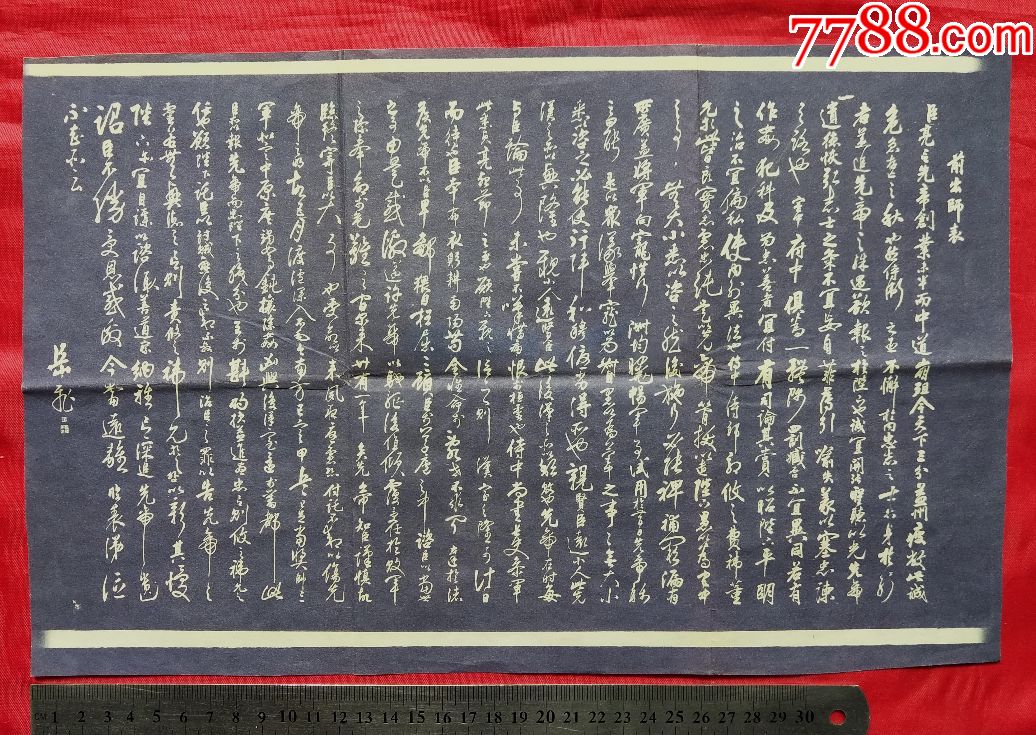 7788.com
前出師表
臣亮言先帝創業未半而中道崩殂今天下三分益州疲敝此誠
危急存亡之秋也然侍衛之臣不懈於內忠志之士亡身於外
者盖追先帝之殊遇欲報之於陛下也誠宜開張聖聽以光先帝
遺德恢弘志士之氣不宜妄自菲薄引喻失義以塞忠諫
之路也宮中府中俱為一體陟罰臧否不宜異同若有
作姦犯科及為忠善者宜付有司論其刑賞以昭陛下平明
之治不宜偏私使內外異法也侍中侍郎郭攸之費禕董
允等此皆良實志慮忠純是以先帝簡拔以遺陛下愚以為宮中
之事事無大小悉以咨之然後施行必能裨補闕漏有
所廣益將軍向寵性行淑均曉暢軍事試用於昔日先帝稱
之曰能是以眾議舉寵為督愚以為營中之事事無大小
悉咨之必能使行陣和睦優劣得所也親賢臣遠小人此先
漢之所以興隆也親小人遠賢臣此後漢之所以傾頹也先帝在時每
與臣論此事未嘗不嘆息痛恨於桓靈也侍中尚書長史參軍
此悉貞亮死節之臣也願陛下親之信之則漢室之隆可計日
而待也臣本布衣躬耕南陽苟全性命於亂世不求聞達於諸
侯先帝不以臣卑鄙猥自枉屈三顧臣於草廬之中諮臣以當世
之事由是感激遂許先帝以驅馳後值傾覆受任於敗軍
之際奉命於危難之間爾來廿有一年矣先帝知臣謹慎故
臨崩寄臣以大事也受命以來夙夜憂慮恐付託不效以傷先
帝之明故五月渡瀘深入不毛今南方已定甲兵已足當獎帥三
軍北定中原庶竭駑鈍攘除姦凶興復漢室還於舊都此
臣所以報先帝而忠陛下之職分也至於斟酌損益進盡忠言則攸之禕允之
任也願陛下託臣以討賊興復之效不效則治臣之罪以告先帝之
靈若無興德之言則責攸之禕允等之咎以彰其慢
陛下亦宜自謀以諮諏善道察納雅言深追先帝遺
詔臣不勝受恩感激今當遠離臨表涕泣
不知所云
岳飛
CM 1 2 3 4 5 6 7 8 9 10 11 12 13 14 15 16 17 18 19 20 21 22 23 24 25 26 27 28 29 30